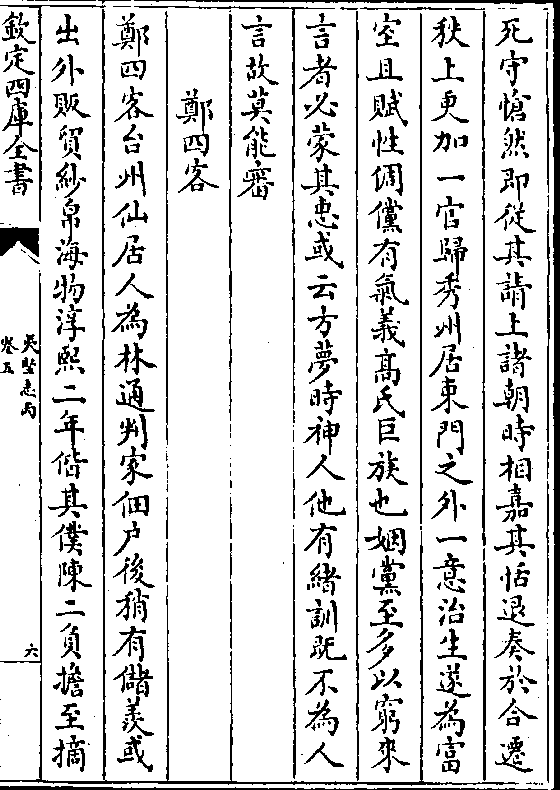 死守愴然即從其請上諸朝時相嘉其恬退奏於合遷
秩上更加一官歸秀州居東門之外一意治生遂為富
室且賦性倜儻有氣義髙氏巨族也姻黨至多以窮來
言者必蒙其惠或云方夢時神人他有緒訓既不為人
言故莫能審
鄭四客
鄭四客台州仙居人為林通判家佃户後稍有儲羨或
出外販貿紗帛海物淳熙二年偕其僕陳二負擔至摘
欽定四庫全書
夷堅志丙
卷五
六